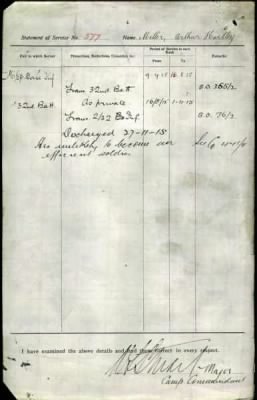 4
Statement of Service No. 577 Name Miller, Arthur Hartley
Unit in which Served. Promotions, Reductions, Casualties, &c. Period of Service in each Rank. Remarks.
From To
9.4.15 16.8.15
From 32nd Batt B.O. 365/2
32nd Batt as private 16/8/15 1-11-15
Trans 2/32 B.O. 76/2
Discharged 27-11-15
As unlikely to become an
efficient soldier
I have examined the above details and find them correct in every respect.
Major
Camp Commandant